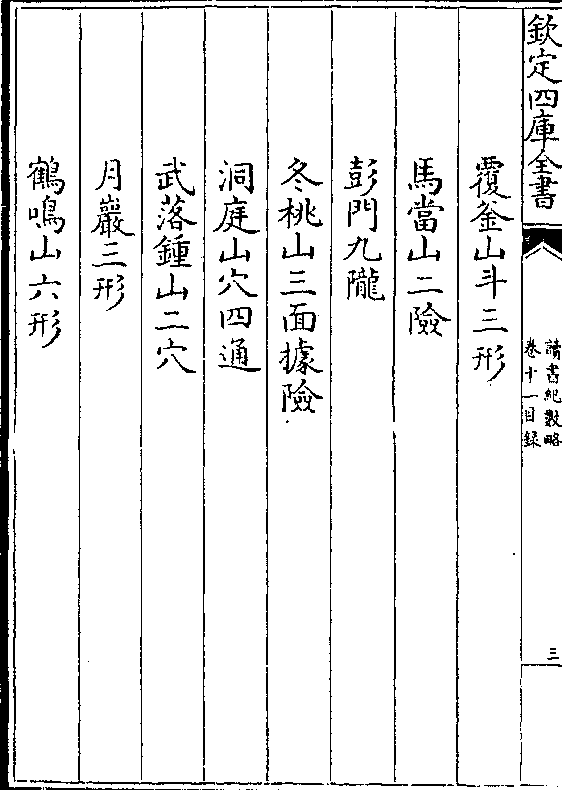 欽定四庫全書
讀書紀數略
卷十一目錄
三
覆釜山斗三形
馬當山二險
彭門九隴
冬桃山三面據險
洞庭山穴四通
武落鍾山二穴
月巖三形
鶴鳴山六形